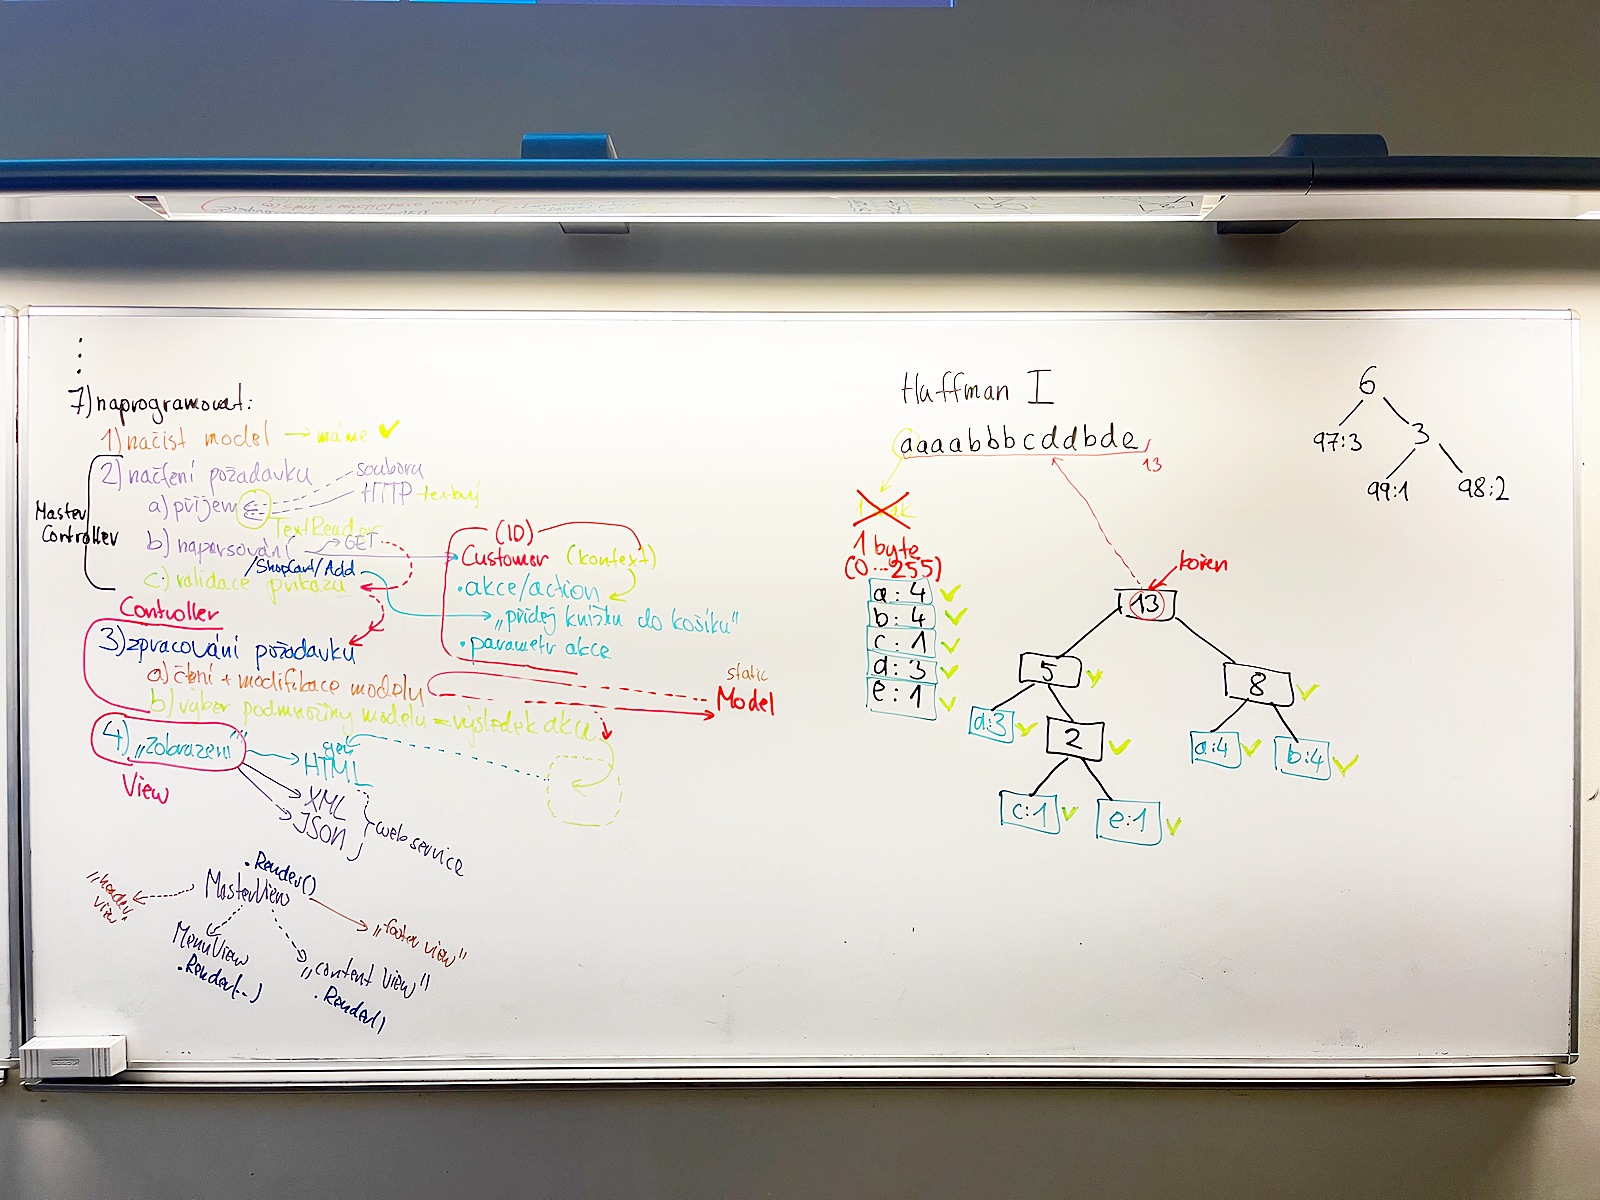 7) naprogramovat:
1) načíst model → máme ✓
2) načtení požadavku
souboru
HTTP textový
a) příjem
TextReader
Master Controller
b) naparsování
GET
/ShopCart/Add
c) validace příkazu
(ID)
Customer (kontext)
• akce/action
„přidej knížku do košíku"
• parametry akce
Controller
3) zpracování požadavku
a) čtení + modifikace modelu
static
Model
b) výběr podmnožiny modelu = výsledek akce
4) „zobrazení"
View
HTML
XML
JSON
web service
.Render()
MasterView
„header view"
„footer view"
MenuView
.Render(...)
„content view"
.Render()
Huffman I
aaaabbbcddbde
13
1 byte
(0...255)
a: 4 ✓
b: 4 ✓
c: 1 ✓
d: 3 ✓
e: 1 ✓
kořen
13
5 ✓
8 ✓
d:3 ✓
2 ✓
a:4 ✓
b:4 ✓
c:1 ✓
e:1 ✓
6
97:3
3
99:1
98:2